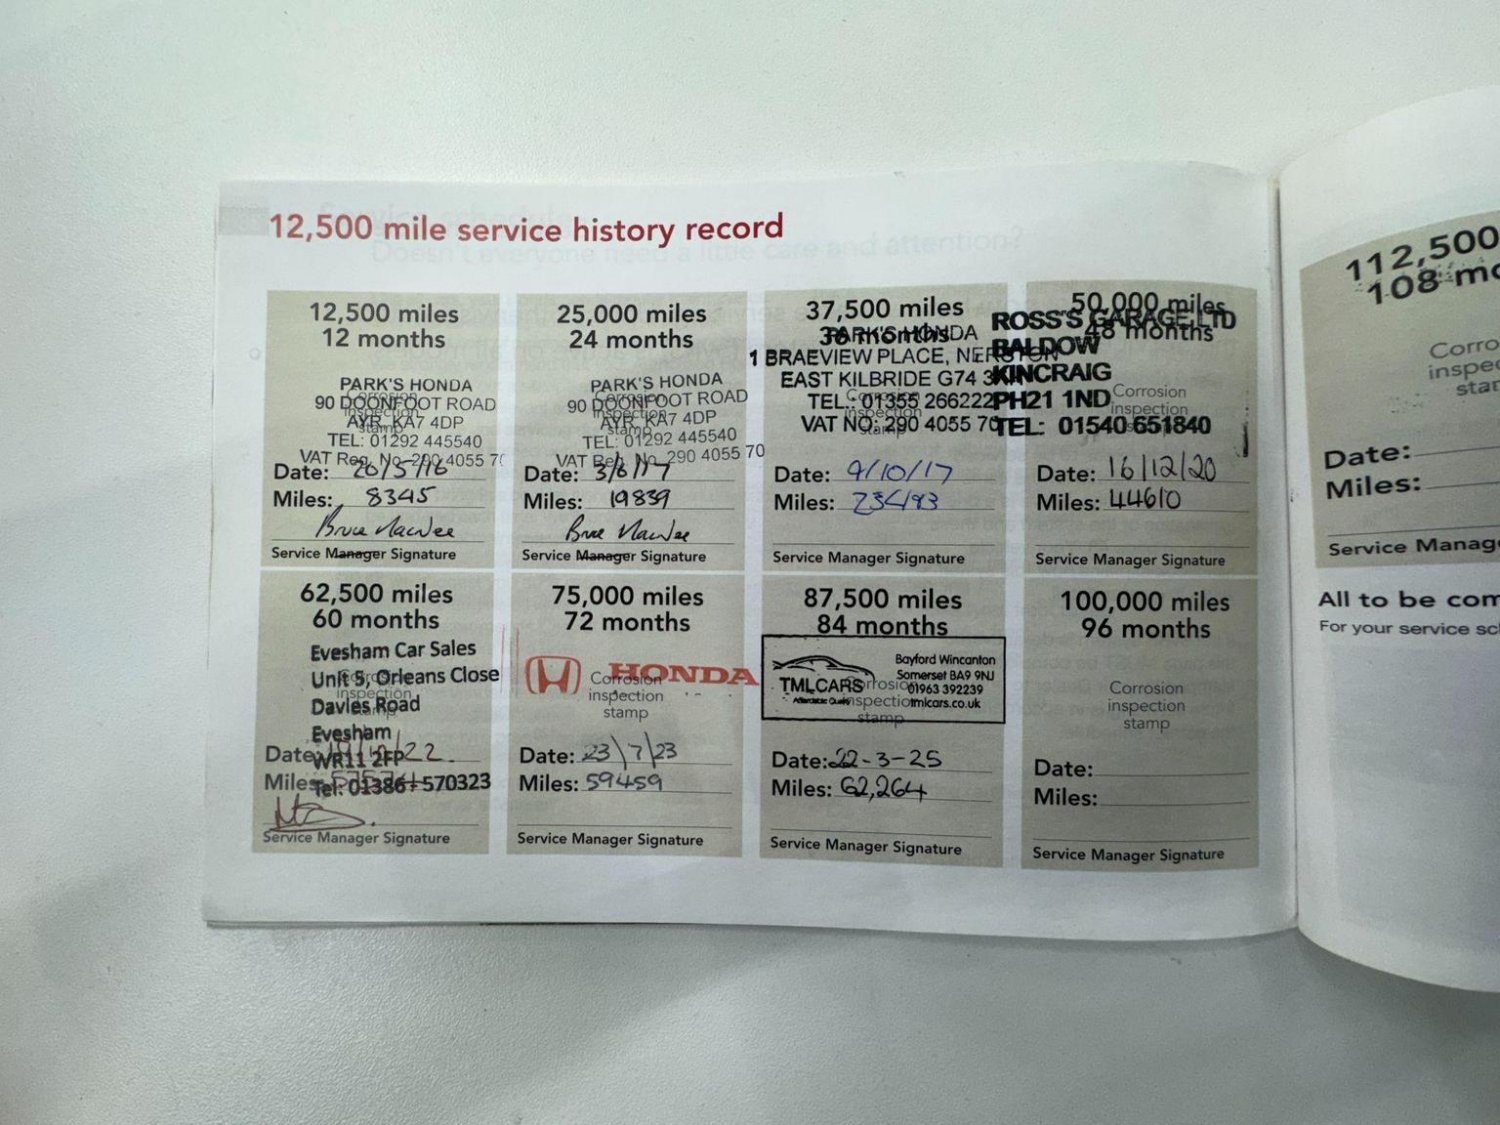 12,500 mile service history record
12,500 miles
12 months
PARK'S HONDA
90 DOONFOOT ROAD
AYR. KA7 4DP
TEL: 01292 445540
VAT Reg. No. 290 4055 70
Corrosion
inspection
stamp
Date: 20/5/16
Miles: 8345
Bruce
Service Manager Signature
25,000 miles
24 months
PARK'S HONDA
90 DOONFOOT ROAD
AYR. KA7 4DP
TEL: 01292 445540
VAT Reg. No. 290 4055 70
Corrosion
inspection
stamp
Date: 3/6/17
Miles: 19839
Service Manager Signature
37,500 miles
36 months
PARK'S HONDA
1 BRAEVIEW PLACE, NERSTON
EAST KILBRIDE G74 3
TEL: 01355 266222
VAT NO: 290 4055 70
Corrosion
inspection
stamp
Date: 9/10/17
Miles:
Service Manager Signature
50,000 miles
48 months
ROSS'S GARAGE LTD
BALDOW
KINCRAIG
PH21 1ND
TEL: 01540 651840
Corrosion
inspection
Date: 16/12/20
Miles: 44610
Service Manager Signature
62,500 miles
60 months
Evesham Car Sales
Unit 5, Orleans Close
Davies Road
Evesham
WR11 2FP
Tel: 01386 570323
Corrosion
inspection
stamp
Date:
Miles:
Service Manager Signature
75,000 miles
72 months
HONDA
Corrosion
inspection
stamp
Date: 23/7/23
Miles: 59459
Service Manager Signature
87,500 miles
84 months
TMLCARS
Affordable Quality
Bayford Wincanton
Somerset BA9 9NJ
01963 392239
tmlcars.co.uk
Corrosion
inspection
stamp
Date: 22-3-25
Miles: 62,264
Service Manager Signature
100,000 miles
96 months
Corrosion
inspection
stamp
Date:
Miles:
Service Manager Signature
112,500
108 mo
Corro
inspec
star
Date:
Miles:
Service Manag
All to be com
For your service sc